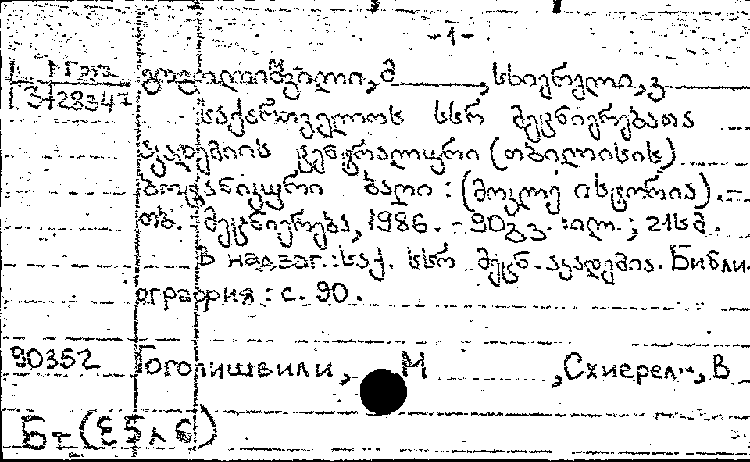 -1-
1 Груз
3-28347
გოგოლიშვილი, მ , სხიერელი, ვ
საქართველოს სსრ მეცნიერებათა
აკადემიის ცენტრალური (თბილისის)
ბოტანიკური ბაღი : (მოკლე ისტორია). -
თბ. : მეცნიერება, 1986. - 90გვ. : ილ. ; 21სმ.
В надзаг. : საქ. სსრ მეცნ. აკადემია. Библи-
ография : с. 90.
90352 Гоголишвили, М , Схиерели, В
Бт